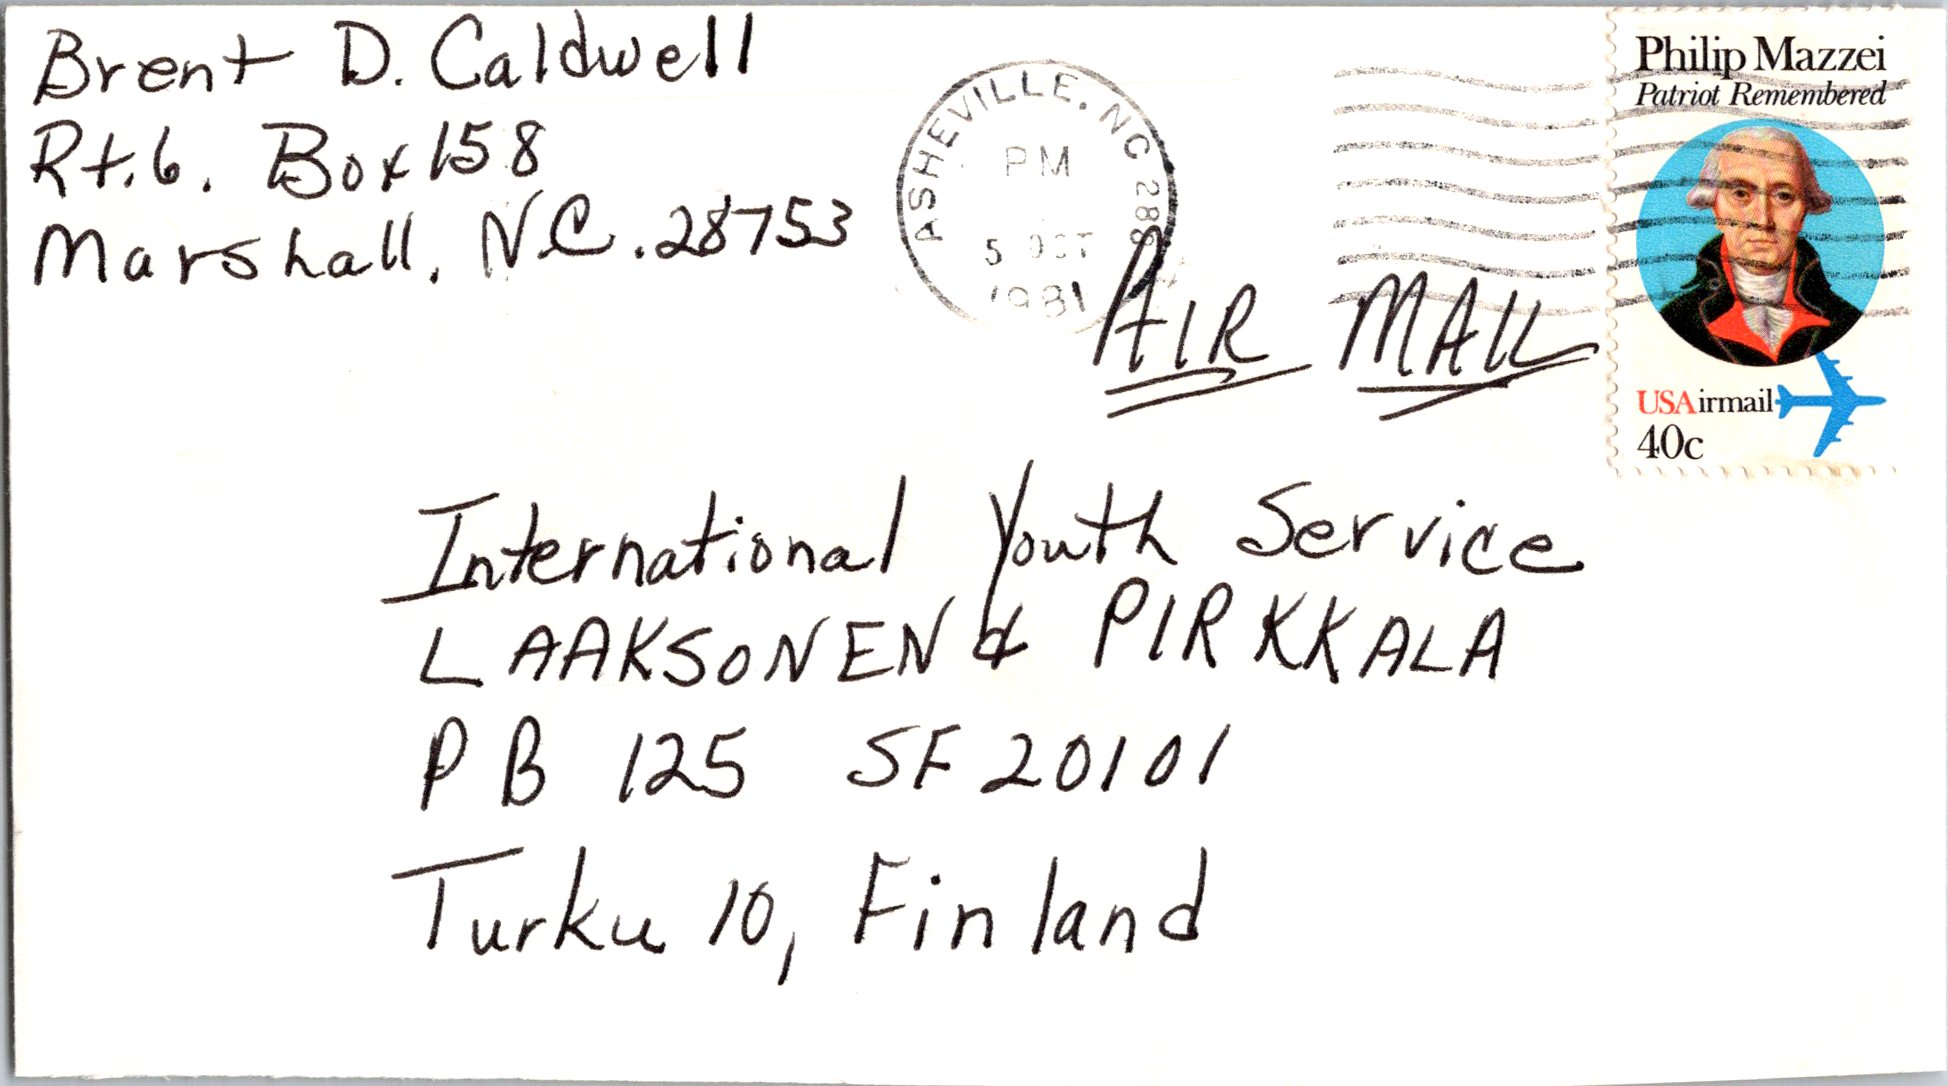 Brent D. Caldwell
Rt. 6. Box 158
Marshall, N.C. 28753
ASHEVILLE, NC 288
PM
5 OCT
1981
AIR MAIL
Philip Mazzei
Patriot Remembered
USAirmail
40c
International Youth Service
LAAKSONEN & PIRKKALA
PB 125 SF 20101
Turku 10, Finland